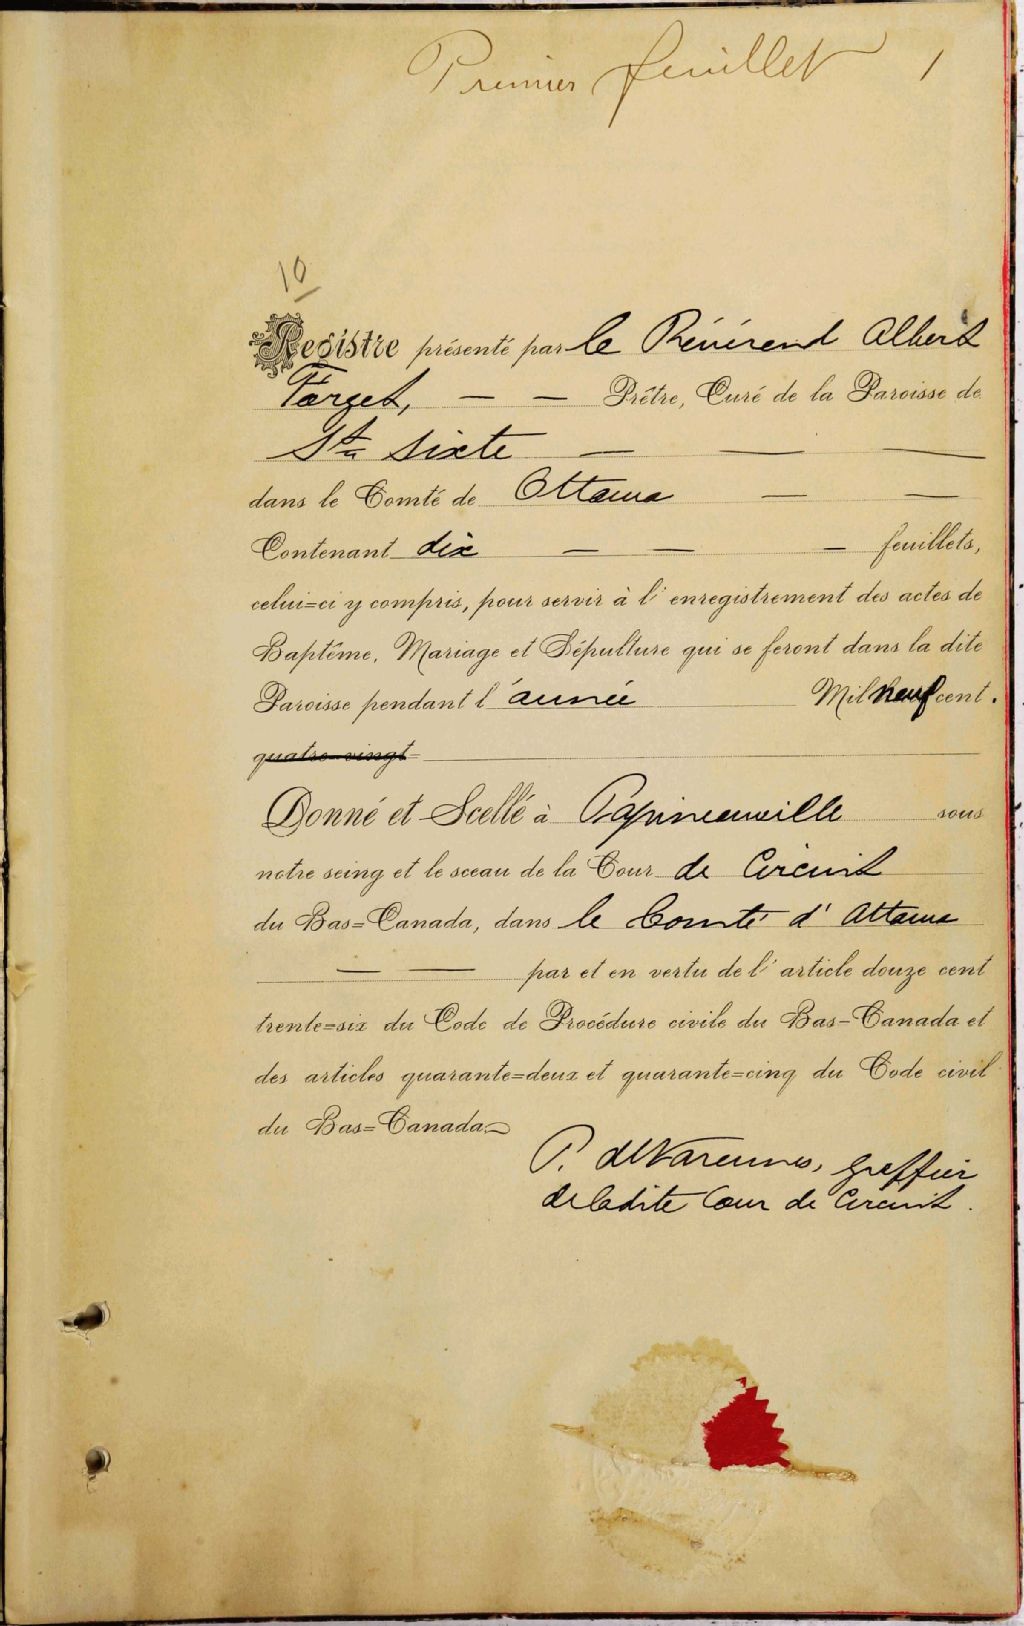 Premier feuillet 1
10
Registre présenté par le Révérend Albert
Farget, — — Prêtre, Curé de la Paroisse de
Ste Sixte — — —
dans le Comté de Ottawa — —
Contenant dix — — — feuillets,
celui=ci y compris, pour servir à l'enregistrement des actes de
Baptême, Mariage et Sépulture qui se feront dans la dite
Paroisse pendant l'année Mil neuf cent.
quatre-vingt
Donné et Scellé à Papineauville sous
notre seing et le sceau de la Cour de Circuit
du Bas=Canada, dans le Comté d'Ottawa
— — par et en vertu de l'article douze cent
trente=six du Code de Procédure civile du Bas-Canada et
des articles quarante=deux et quarante=cinq du Code civil
du Bas=Canada
P. deVarennes, Greffier
de ladite Cour de Circuit.